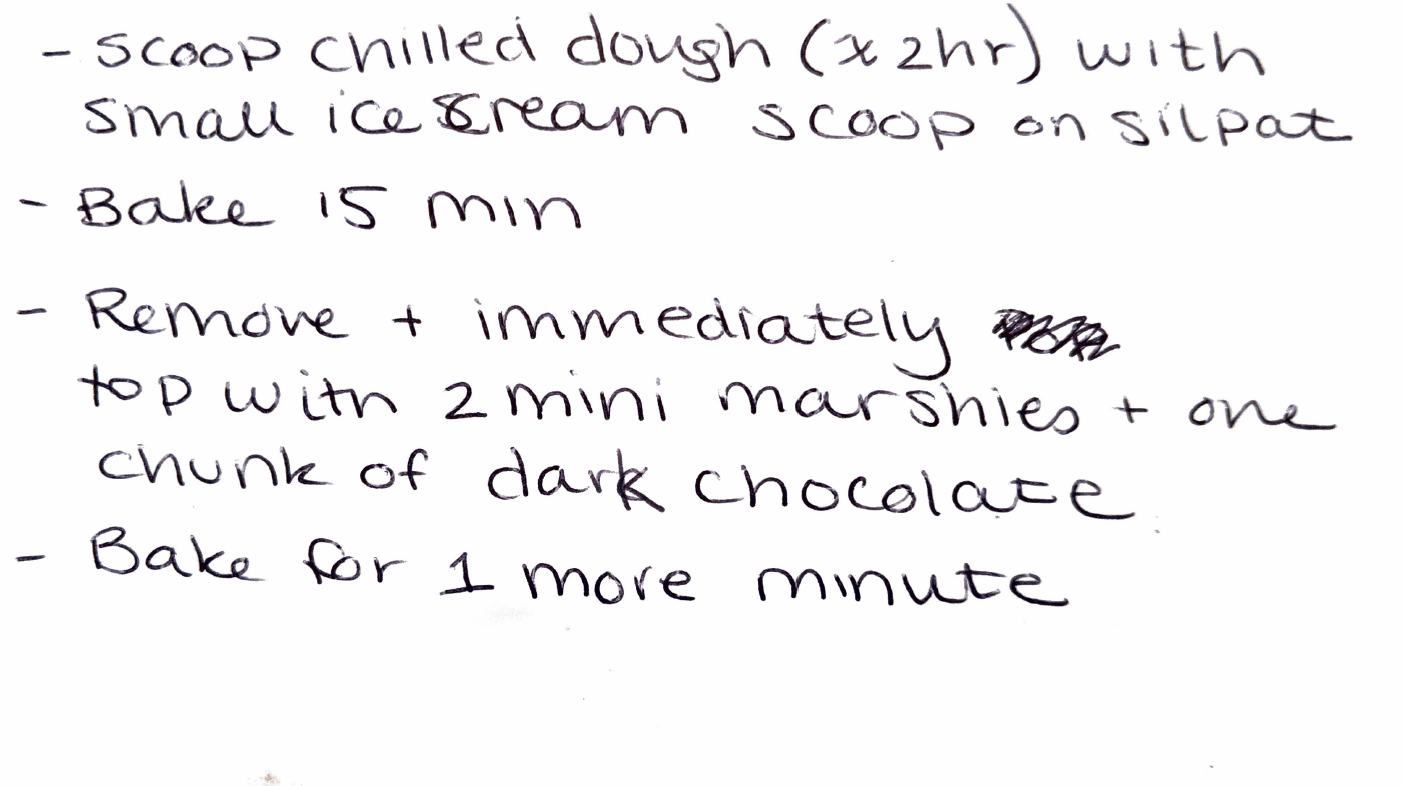 - scoop chilled dough (x 2hr) with
small ice cream scoop on silpat
- Bake 15 min
- Remove + immediately
top with 2 mini marshies + one
chunk of dark chocolate
- Bake for 1 more minute